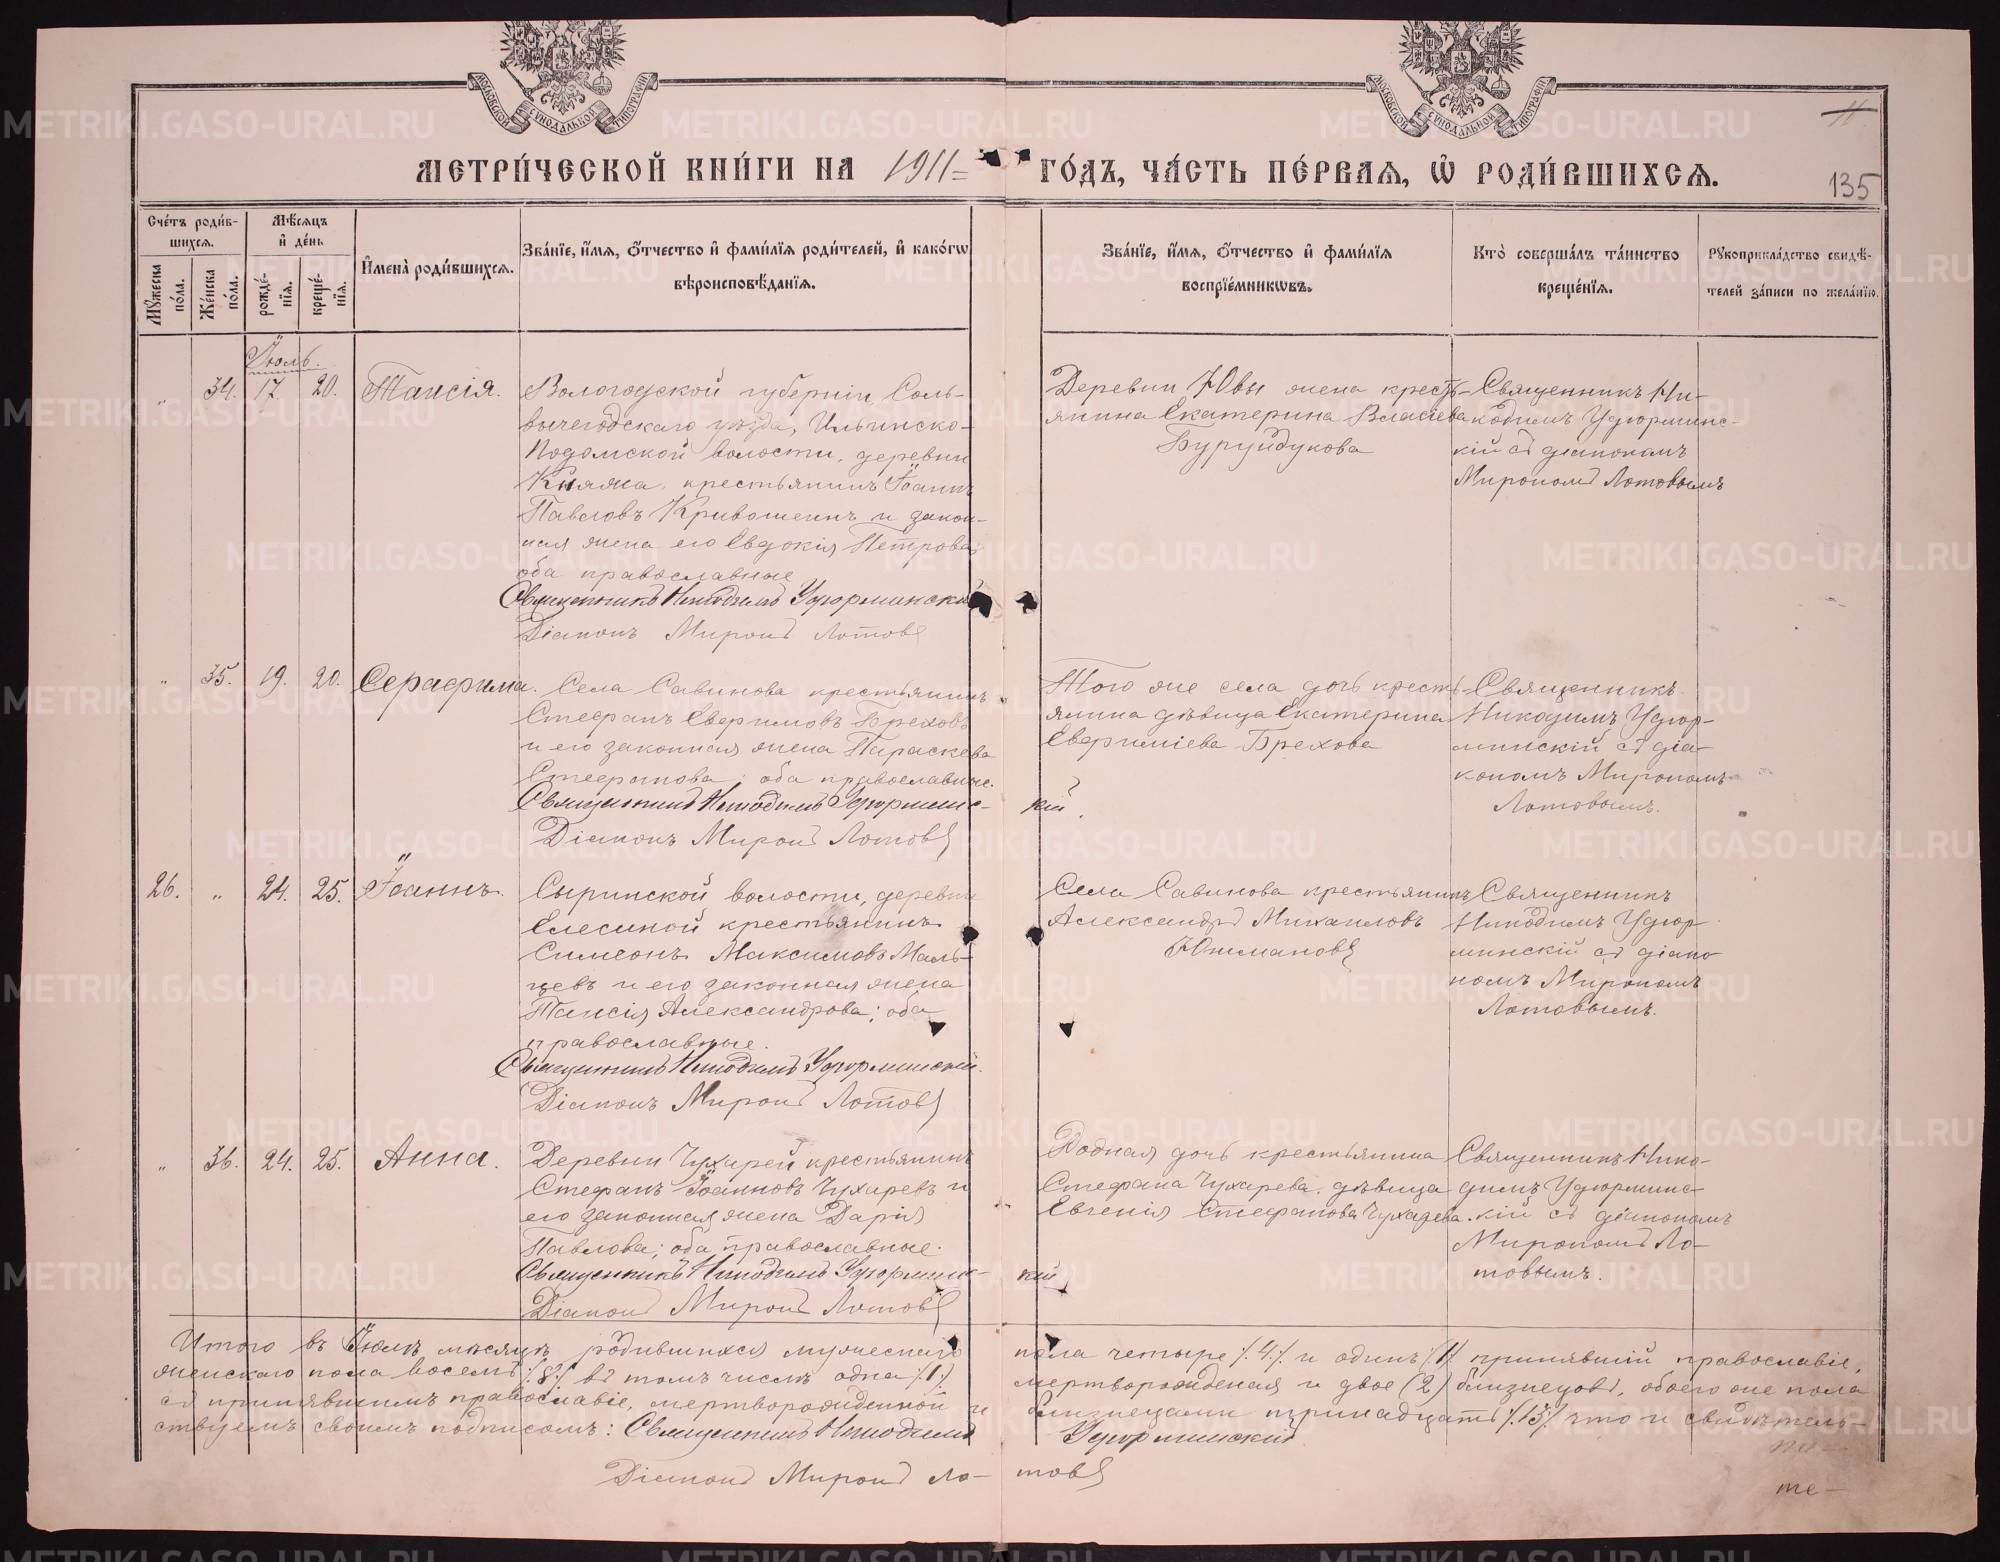 МОСКОВСКОЙ СѴНОДАЛЬНОЙ ТИПОГРАФІИ
МОСКОВСКОЙ СѴНОДАЛЬНОЙ ТИПОГРАФІИ
11
МЕТРИ́ЧЕСКОЙ КНИ́ГИ НА 1911 = ГО́ДЪ, ЧА́СТЬ ПЕ́РВАЯ, Ѡ РОДИ́ВШИХСЯ.
135
Сче́тъ роди́в-
шихся.
Мѣ́сяцъ
и́ де́нь
Мꙋжеска по́ла.
Же́нска по́ла.
рожде́-
нїя.
креще́-
нїя.
И҆мена̀ роди́вшихся.
Зва́нїе, и҆́мя, ѻ҆́тчество и҆ фами́лїя роди́телей, и҆ како́гѡ
вѣроисповѣ́данїя.
Зва́нїе, и҆́мя, ѻ҆́тчество и҆ фами́лїя
воспрїе́мникѡвъ.
Кто̀ соверша́лъ та́инство
креще́нїя.
Рꙋкоприкла́дство свидѣ́-
телей за́писи по жела́нїю.
Іюль.
" 34. 17. 20. Таисія.
Вологодской губерніи Соль-
вычегодскаго уѣзда, Ильинско-
Подомской волости, деревни
Княжа, крестьянинъ Іоаннъ
Павловъ Кривошеинъ и закон-
ная жена его Евдокія Петрова;
оба православные
Священникъ Никодимъ Удюрминскій
Діаконъ Миронъ Лотовъ
Деревни Ювы жена кресть-
янина Екатерина Власіева
Буруйдукова
Священникъ Ни-
кодимъ Удюрминс-
кій съ діакономъ
Мирономъ Лотовымъ
" 35. 19. 20. Серафима.
Села Савинова крестьянинъ
Стефанъ Евфимовъ Бреховъ
и его законная жена Параскева
Стефанова; оба православные.
Священникъ Никодимъ Удюрминс-
кій.
Діаконъ Миронъ Лотовъ
Того же села дочь кресть-
янина дѣвица Екатерина
Евфиміева Брехова
Священникъ
Никодимъ Удюр-
минскій съ діа-
кономъ Мирономъ
Лотовымъ.
26. " 24. 25. Іоаннъ.
Сыринской волости, деревни
Елесиной крестьянинъ
Симеонъ Максимовъ Маль-
цевъ и его законная жена
Таисія Александрова; оба
православные.
Священникъ Никодимъ Удюрминскій.
Діаконъ Миронъ Лотовъ
Села Савинова крестьянинъ
Александръ Михаиловъ
Юшмановъ
Священникъ
Никодимъ Удюр-
минскій съ діако-
номъ Мирономъ
Лотовымъ.
" 36. 24. 25. Анна.
Деревни Чухарей крестьянинъ
Стефанъ Іоанновъ Чухаревъ и
его законная жена Дарія
Павлова; оба православные.
Священникъ Никодимъ Удюрминс-
кій
Діаконъ Миронъ Лотовъ
Родная дочь крестьянина
Стефана Чухарева, дѣвица
Евгенія Стефанова Чухарева.
Священникъ Нико-
димъ Удюрминс-
кій съ діакономъ
Мирономъ Ло-
товымъ.
Итого въ Іюлѣ мѣсяцѣ родившихся мужескаго пола четыре /.4./ и одинъ /1/ принявшій православіе,
женскаго пола восемь /.8./ въ томъ числѣ одна /.1./ мертворожденая и двое (2) близнецовъ, обоего же пола
съ принявшимъ православіе, мертворожденной и близнецами тринадцать /.13./ что и свидѣтель-
ствуемъ своимъ подписомъ: Священникъ Никодимъ Удюрминскій
Діаконъ Миронъ Ло-товъ
те-
METRIKI.GASO-URAL.RU